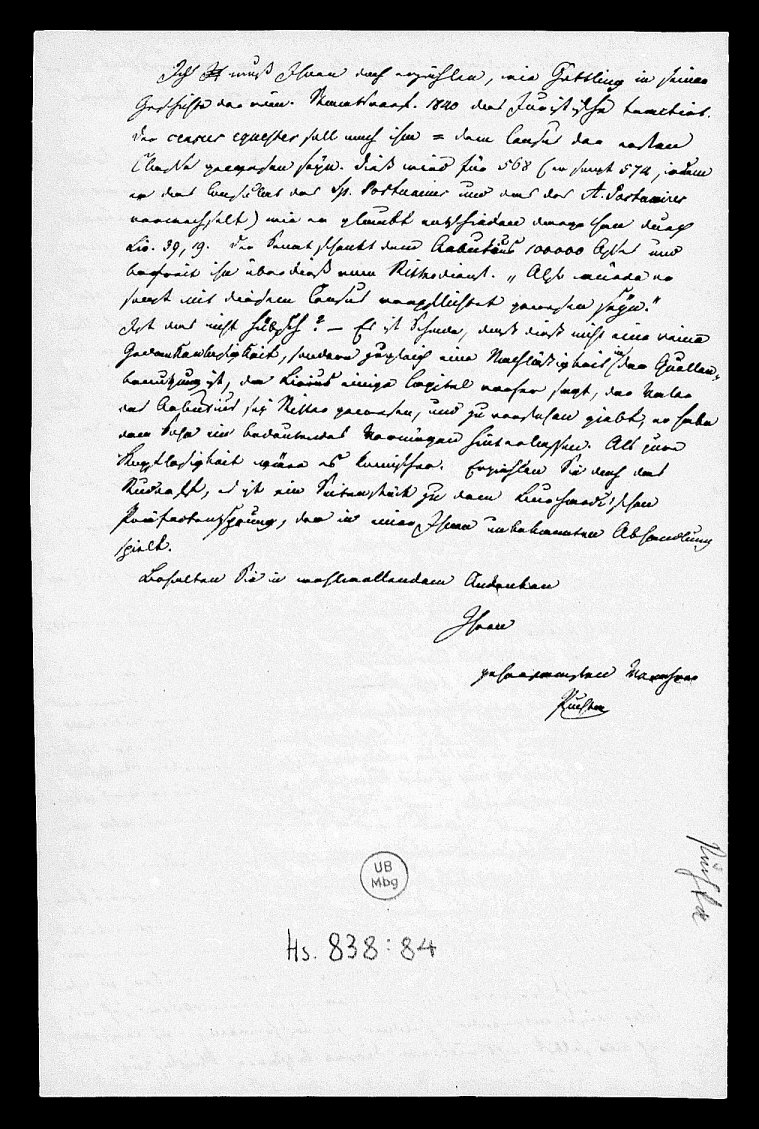 Ich muß Ihnen doch erzählen, wie Göttling in seiner
Geschichte der röm. Staatsverf. 1840 das Juristische tractirt.
Der census equester soll nach ihm = dem Census der ersten
Classe gewesen seyn. Dieß wird für 568 (er sagt 574, indem
er das Consulat des Sp. Postumus und das des A. Postumius
verwechselt) wie er glaubt entschieden durch
Liv. 39, 19. Der Senat schenkt dem Aebutius 100000 Asse und
befreit ihn überdieß vom Ritterdienst. „Also würde er
sonst mit diesem Census verpflichtet gewesen seyn."
Ist das nicht hübsch? – Es ist Schade, daß dieß nicht eine reine
Gedankenlosigkeit, sondern zugleich eine Nachläßigkeit in der Quellen-
benutzung ist, da Livius einige Capitel vorher sagt, der Vater
des Aebutius sey Ritter gewesen, und zu verstehen giebt, er habe
dem Sohn ein bedeutendes Vermögen hinterlassen. Als pure
Kopflosigkeit wäre es komischer. Erzählen Sie doch das
Rudorff, es ist ein Seitenstück zu dem Huschkeschen
, der in einer Ihnen unbekannten Abhandlung
spielt.
Behalten Sie in wohlwollendem Andenken
Ihren
gehorsamsten Verehrer
Puchta
Puchta
UB
Mbg
Hs. 838:84